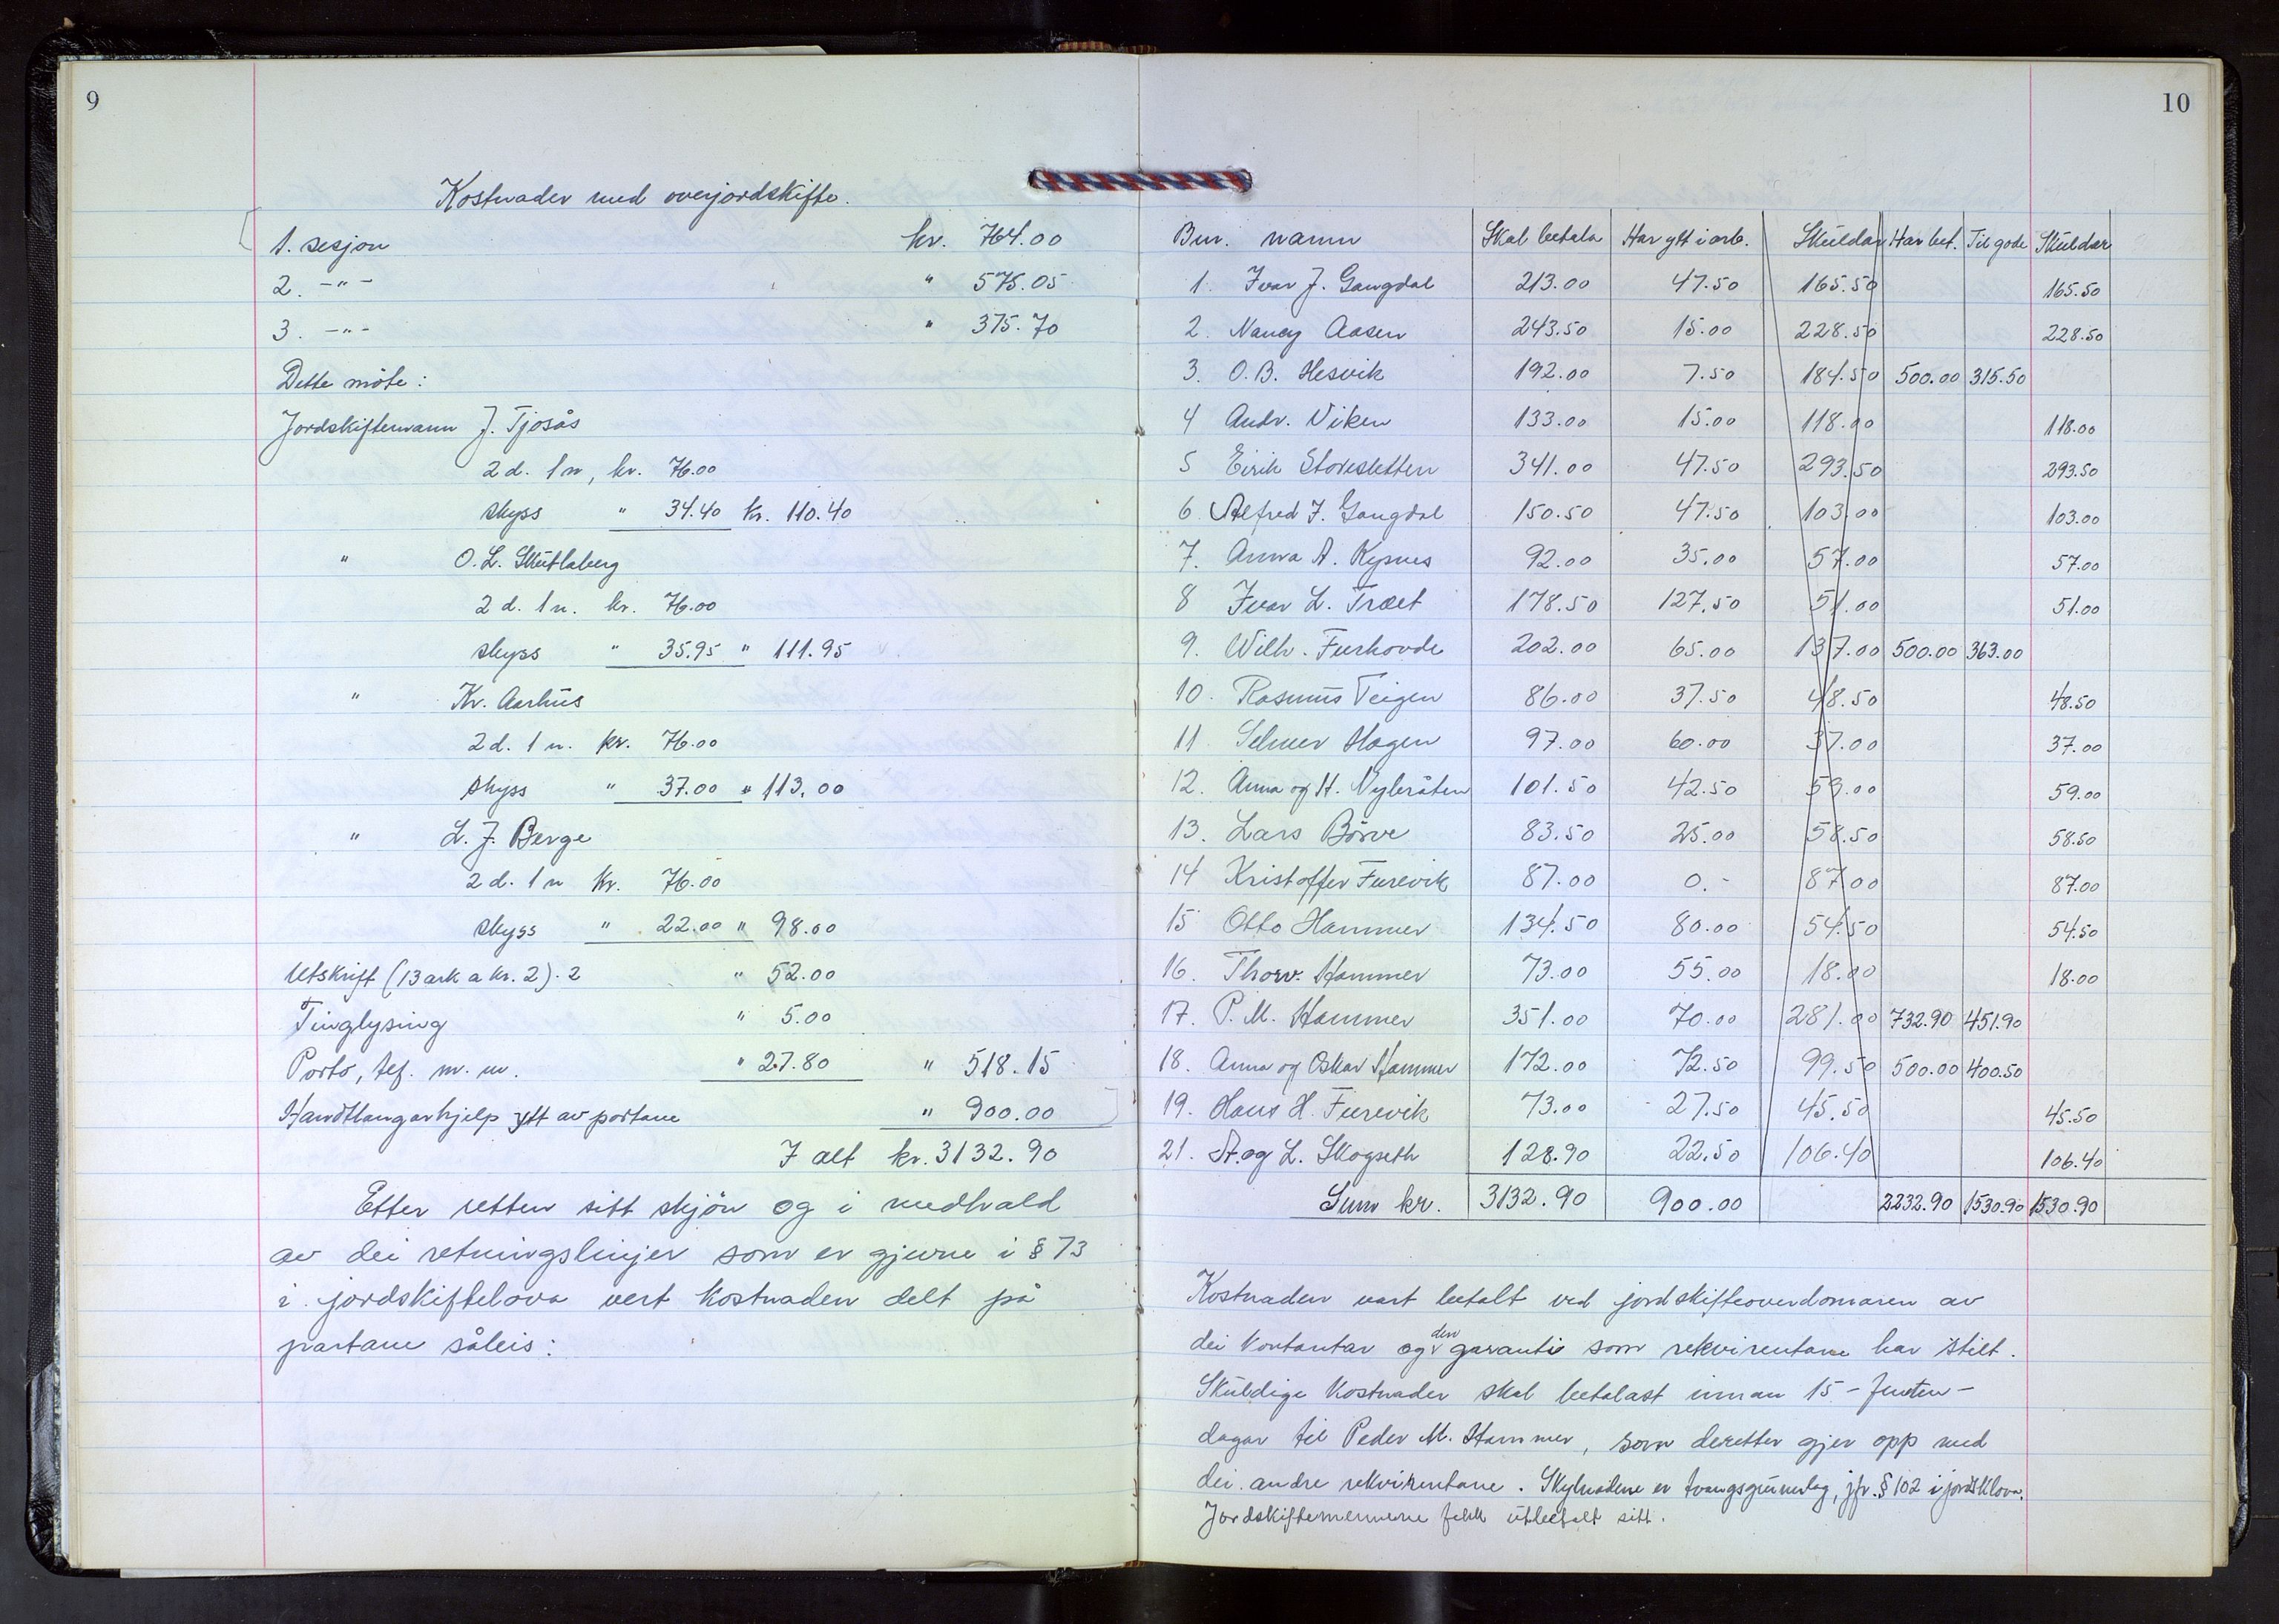 9
Kostnader med overjordskifte.
1. sesjon kr. 764.00
2. -"- " 575.05
3. -"- " 375.70
Dette møte:
Jordskiftemann J. Tjosås
2 d. 1 n, kr. 76.00
skyss " 34.40 kr. 110.40
" O. L. Skutlaberg
2 d. 1 n. kr. 76.00
skyss " 35.95 " 111.95
" Kr. Aarhus
2 d. 1 n. kr. 76.00
skyss " 37.00 " 113.00
" L. J. Berge
2 d. 1 n kr. 76.00
skyss " 22.00 " 98.00
Utskrift (13 ark a kr. 2). 2 " 52.00
Tinglysing " 5.00
Porto, tlf. m. m. " 27.80 " 518.15
Handtlangarhjelp ytt av partane " 900.00
I alt kr. 3132.90
Etter retten sitt skjön og i medhald
av dei retningslinjer som er gjevne i § 73
i jordskiftelova vert kostnaden delt på
partane såleis:
10
Bnr. namn Skal betala Har ytt i arb. Skuldar Har bet. Til gode Skuldar
1. Ivar J. Gangdal 213.00 47.50 165.50 165.50
2. Nancy Aasen 243.50 15.00 228.50 228.50
3. O. B. Hesvik 192.00 7.50 184.50 500.00 315.50
4 Andr. Viken 133.00 15.00 118.00 118.00
5 Eirik Storesletten 341.00 47.50 293.50 293.50
6. Alfred J. Gangdal 150.50 47.50 103.00 103.00
7. Anna A. Kypnes 92.00 35.00 57.00 57.00
8 Ivar L. Træet 178.50 127.50 51.00 51.00
9. Wilh. Furhovde 202.00 65.00 137.00 500.00 363.00
10. Rasmus Teigen 86.00 37.50 48.50 48.50
11. Selmer Hagen 97.00 60.00 37.00 37.00
12. Anna og H. Nybråten 101.50 42.50 59.00 59.00
13. Lars Börve 83.50 25.00 58.50 58.50
14 Kristoffer Furevik 87.00 0.- 87.00 87.00
15 Otto Hammer 134.50 80.00 54.50 54.50
16. Thorv. Hammer 73.00 55.00 18.00 18.00
17. P. M. Hammer 351.00 70.00 281.00 732.90 451.90
18. Anna og Oskar Hammer 172.00 72.50 99.50 500.00 400.50
19. Hans H. Furevik 73.00 27.50 45.50 45.50
21. A. og L. Skogseth 128.90 22.50 106.40 106.40
Sum kr. 3132.90 900.00 2232.90 1530.90 1530.90
Kostnaden vart betalt ved jordskifteoverdomaren av
dei kontantar og den garanti som rekvirentane har stilt.
Skuldige kostnader skal betalast innan 15 - femten -
dagar til Peder M. Hammer, som deretter gjer opp med
dei andre rekvirentane. Skyldnadene er tvangsgrunnlag, jfr. § 102 i jordsklova.
Jordskiftemennene fekk utbetalt sitt.